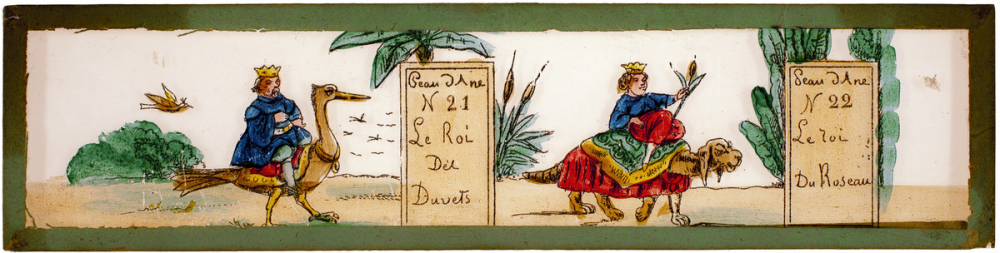 Peau d'Ane
N 21
Le Roi
Des
Duvets
Peau d'Ane
N 22
Le roi
Du Roseau